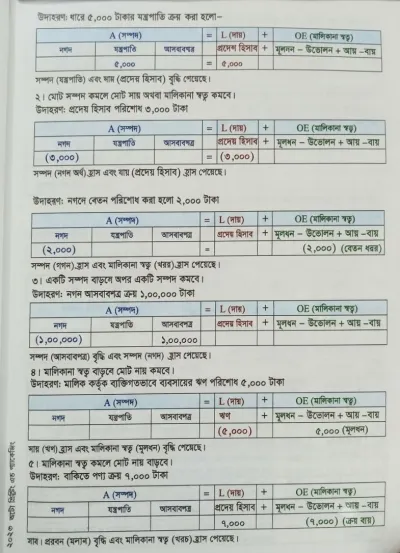 উদাহরণ: ধারে ৫,০০০ টাকায় যন্ত্রপাতি ক্রয় করা হলো–
A (সম্পদ) = L (দায়) + OE (মালিকানা স্বত্ব)
নগদ যন্ত্রপাতি আসবাবপত্র প্রদেশ হিসাব + মূলধন – উত্তোলন + আয় –ব্যয়
৫,০০০ = ৫,০০০
সম্পদ (যন্ত্রপাতি) এবং দায় (প্রদেয় হিসাব) বৃদ্ধি পেয়েছে।
২। মোট সম্পদ কমলে মোট দায় অথবা মালিকানা স্বত্ব কমবে।
উদাহরণ: প্রদেয় হিসাব পরিশোধ ৩,০০০ টাকা
A (সম্পদ) = L (দায়) + OE (মালিকানা স্বত্ব)
নগদ যন্ত্রপাতি আসবাবপত্র প্রদেয় হিসাব + মূলধন – উত্তোলন + আয় –ব্যয়
(৩,০০০) = (৩,০০০)
সম্পদ (নগদ অর্থ) হ্রাস এবং দায় (প্রদেয় হিসাব) হ্রাস পেয়েছে।
উদাহরণ: নগদে বেতন পরিশোধ করা হলো ২,০০০ টাকা
A (সম্পদ) = L (দায়) + OE (মালিকানা স্বত্ব)
নগদ যন্ত্রপাতি আসবাবপত্র প্রদেয় হিসাব + মূলধন – উত্তোলন + আয় –ব্যয়
(২,০০০) = (২,০০০) (বেতন খরচ)
সম্পদ (নগদ) হ্রাস এবং মালিকানা স্বত্ব (খরচ) হ্রাস পেয়েছে।
৩। একটি সম্পদ বাড়বে অপর একটি সম্পদ কমবে।
উদাহরণ: নগদ আসবাবপত্র ক্রয় ১,০০,০০০ টাকা
A (সম্পদ) = L (দায়) + OE (মালিকানা স্বত্ব)
নগদ যন্ত্রপাতি আসবাবপত্র প্রদেয় হিসাব + মূলধন – উত্তোলন + আয় –ব্যয়
(১,০০,০০০) ১,০০,০০০
সম্পদ (আসবাবপত্র) বৃদ্ধি এবং সম্পদ (নগদ) হ্রাস পেয়েছে।
৪। মালিকানা স্বত্ব বাড়বে মোট দায় কমবে।
উদাহরণ: মালিক কর্তৃক ব্যক্তিগতভাবে ব্যবসায়ের ঋণ পরিশোধ ৫,০০০ টাকা
A (সম্পদ) = L (দায়) + OE (মালিকানা স্বত্ব)
নগদ যন্ত্রপাতি আসবাবপত্র ঋণ + মূলধন – উত্তোলন + আয় –ব্যয়
(৫,০০০) ৫,০০০ (মূলধন)
দায় (ঋণ) হ্রাস এবং মালিকানা স্বত্ব (মূলধন) বৃদ্ধি পেয়েছে।
৫। মালিকানা স্বত্ব কমলে মোট দায় বাড়বে।
উদাহরণ: বাকিতে পণ্য ক্রয় ৭,০০০ টাকা
A (সম্পদ) = L (দায়) + OE (মালিকানা স্বত্ব)
নগদ যন্ত্রপাতি আসবাবপত্র প্রদেয় হিসাব + মূলধন – উত্তোলন + আয় –ব্যয়
৭,০০০ (৭,০০০) (ক্রয় ব্যয়)
এবং মালিকানা স্বত্ব (খরচ) হ্রাস পেয়েছে।